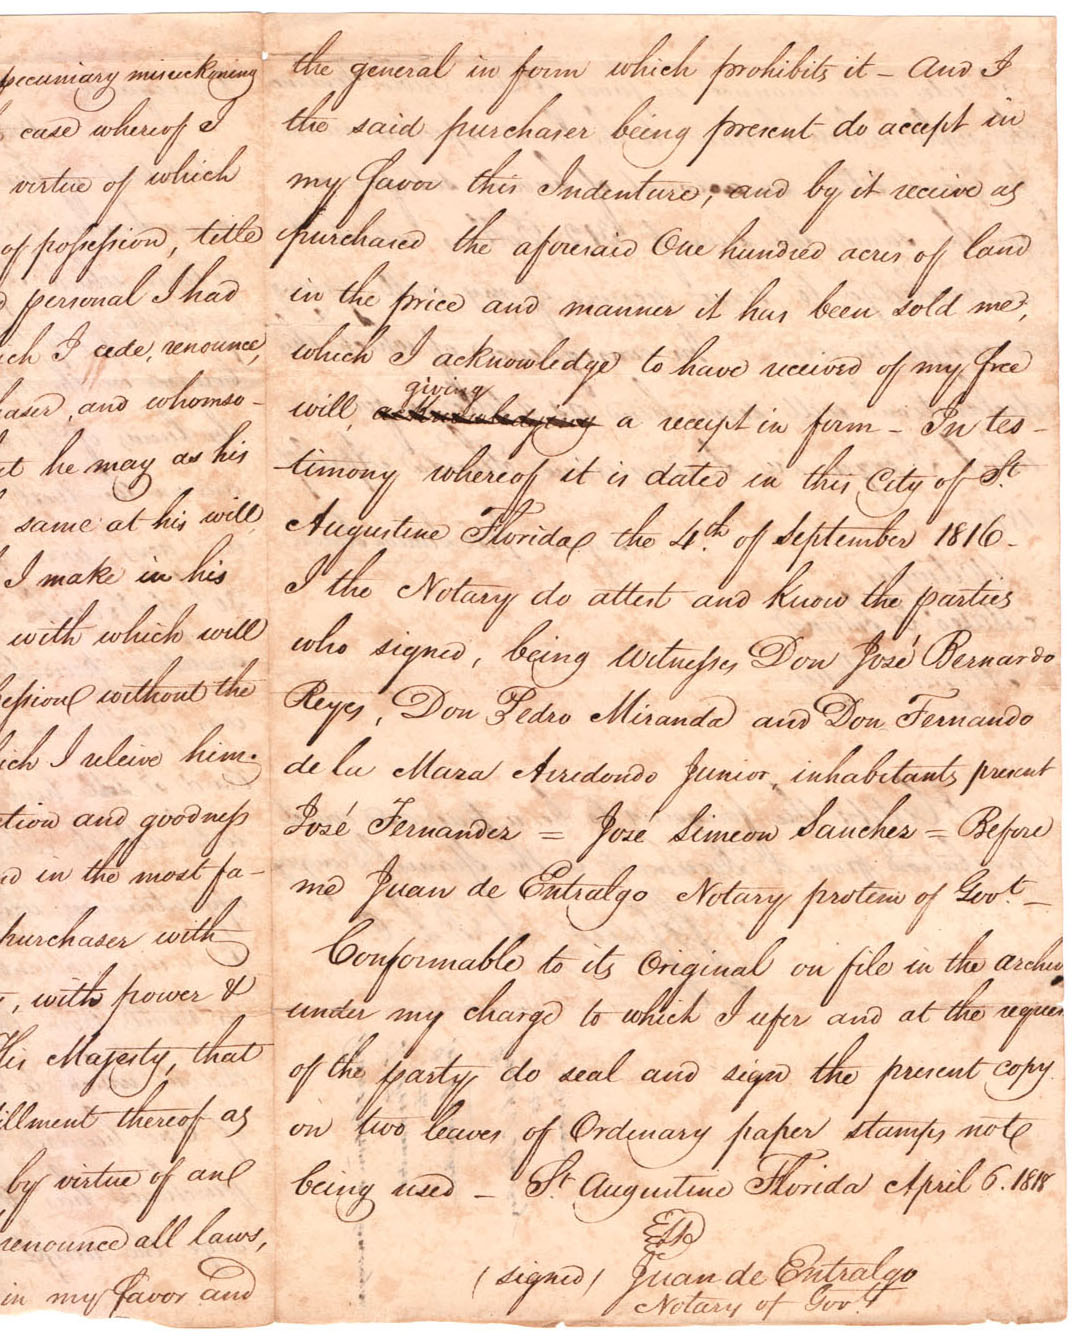 pecuniary misreckoning
case whereof I
virtue of which
of possession, title
personal I had
I cede, renounce,
and whomso-
he may as his
same at his will
I make in his
with which will
without the
I releive him.
and goodness
in the most fa-
purchaser with
, with power &
His Majesty, that
thereof as
by virtue of an
renounce all laws,
in my favor and
the general in form which prohibits it - And I
the said purchaser being present do accept in
my favor this Indenture, and by it receive as
purchased the aforesaid One hundred acres of land
in the price and manner it has been sold me,
which I acknowledge to have received of my free
giving
will, acknowledging a receipt in form - In tes-
timony whereof it is dated in this City of St.
Augustine Florida the 4th. of September 1816 -
I the Notary do attest and know the parties
who signed, being Witnesses Don José Bernardo
Reyes, Don Pedro Miranda and Don Fernando
de la Maza Arredondo Junior, inhabitants present
José Fernandez = José Simeon Sanchez = Before
me Juan de Entralgo Notary protem of Govt. -
Conformable to its Original on file in the archiv
under my charge to which I refer and at the reques
of the party do seal and sign the present copy
on two leaves of Ordinary paper stamps not
being used - St. Augustine Florida April 6. 1818
(signed) Juan de Entralgo
Notary of Govt.